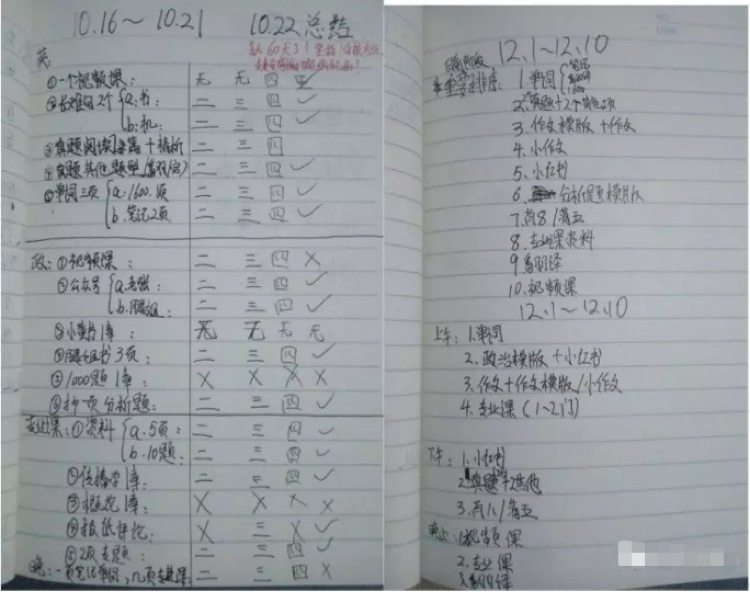 10.16～10.21 10.22总结
英:
①一个视频课: 无 无 四
②长难句2个 a:书: 二 三 四 ✓
b:机: 二 三 四 ✓
③真题阅读 + 精析 二 三 四
④真题其他题型 二 三 四 ✓
⑤单词三项 a.1600.1项 二 三 四 ✓
b.笔记2项 二 三 四 ✓
政:①视频课: 二 三 四 X
②公众号 a. 二 三 四 ✓
b.腿姐: 二 三 四 ✓
③小黄书1章: 无 无 无 无
④腿姐书3项: 二 三 四 ✓
⑤1000题1章: X X X X
⑥抄一页分析题: 二 三 四 ✓
专业课:①资料 a.5页: 二 三 四 ✓
b.10题: 二 三 四 ✓
②传播学1章: 二 三 四 ✓
③概论1章: X X X X
④报纸评论: X 三 X ✓
⑤2项专题: 二 三 四 ✓
晚:一页笔记单词, 二 三 四 X
12.1～12.10
重要排序: 1.单词 笔记
1600
2.真题+2个其他项
3.作文模版+作文
4.小作文
5.小红书
6.分析题模版
7.肖8/肖五
8.专业课资料
9.翻译
10.视频课
12.1～12.10
上午: 1.单词
2.政治模版+小红书
3.作文+作文模版/小作文
4.专业课(1~2门)
下午: 1.小红书
2.真题+2其他
3.肖八/肖五
晚上:1.视频课
2.专业课
3.翻译